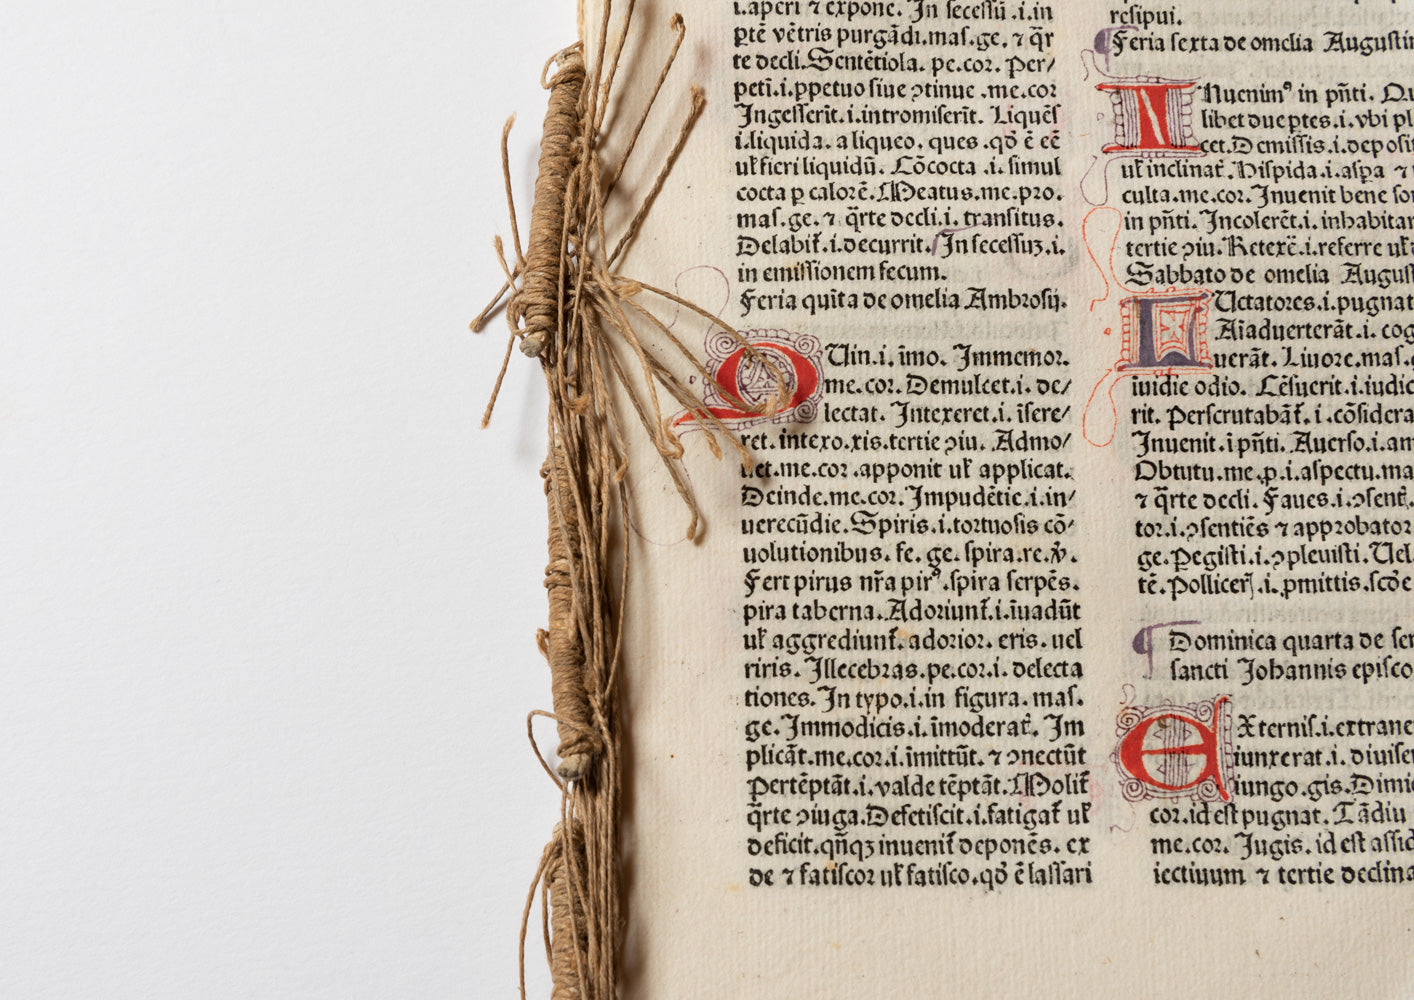 i.aperi ⁊ expone. In secessū .i.in
ꝑtē vētris purgādi.mas.ge. ⁊ q̄r
te decli.Sentētiola. pe.cor. Per/
peti.i.ꝑpetuo siue ꝯtinue .me.cor
Ingesserīt.i.intromiserīt. Liquēs
i.liquida. a liqueo. ques .qd̄ ē eē
uł fieri liquidū. Cōcocta .i. simul
cocta ꝑ calorē. Meatus.me.pro.
mas.ge. ⁊ q̄rte decli.i. transitus.
Delabit̄.i.decurrit. In secessuꝫ.i.
in emissionem fecum.
Feria quīta de omelia Ambrosij.
QUin.i. īmo. Immemor.
me.cor. Demulcet.i. de/
lectat. Intexeret.i. īsere/
ret. intexo.xis.tertie ꝯiu. Admo/
uet.me.cor .apponit uł applicat.
Deinde.me.cor. Impudētie.i.in/
uerecūdie. Spiris.i.tortuosis cō/
uolutionibus. fe. ge. spira.re.v̄.
Fert pirus nr̄a pirꝰ .spira serpēs.
pira taberna. Adoriunt̄.i.īuadūt
uł aggrediunt̄. adorior. eris. uel
riris. Illecebras.pe.cor.i. delecta
tiones. In typo.i.in figura. mas.
ge. Immodicis.i. īmoderat̄. Im
plicāt.me.cor.i.īmittūt. ⁊ ꝯnectūt
Pertēptāt.i.valde tēptāt. Molit̄
q̄rte ꝯiuga. Defetiscit.i.fatigat̄ uł
deficit.qn̄qꝫ inuenit̄ deponēs. ex
de ⁊ fatiscor uł fatisco.qd̄ ē lassari
resipui.
¶ Feria sexta de omelia Augustin
INuenimꝰ in pn̄ti. Qu
libet due ꝑtes.i.vbi pl
cet. Demissis.i.deposit
uł inclinat̄. Hispida.i.aspa ⁊
culta.me.cor. Inuenit bene so
in pn̄ti. Incolerēt.i. inhabitar
tertie ꝯiu. Retexē.i.referre uł
Sabbato de omelia August
LUctatores.i.pugnat
Aīaduerterāt.i. cog
uerāt. Liuore.mas.
iuidie odio. Cēsuerit.i.iudic
rit. Perscrutabāt̄.i.cōsidera
Inuenit.i pn̄ti. Auerso.i.am
Obtutu.me.ꝑ.i.aspectu.ma
⁊ q̄rte decli. Faues.i.ꝯsent̄.
tor.i.ꝯsentiēs ⁊ approbator
ge. Pegisti.i.ꝯpleuisti. Uel.
tē. Pollicerꝭ.i.ꝓmittis.scōe
¶ Dominica quarta de se
sancti Iohannis episco
EXternis.i.extrane
iunxerat.i. diuise
iungo.gis. Dimi
cor.id est pugnat. Tādiu
me.cor. Iugis. id est assid
iectiuum ⁊ tertie declina